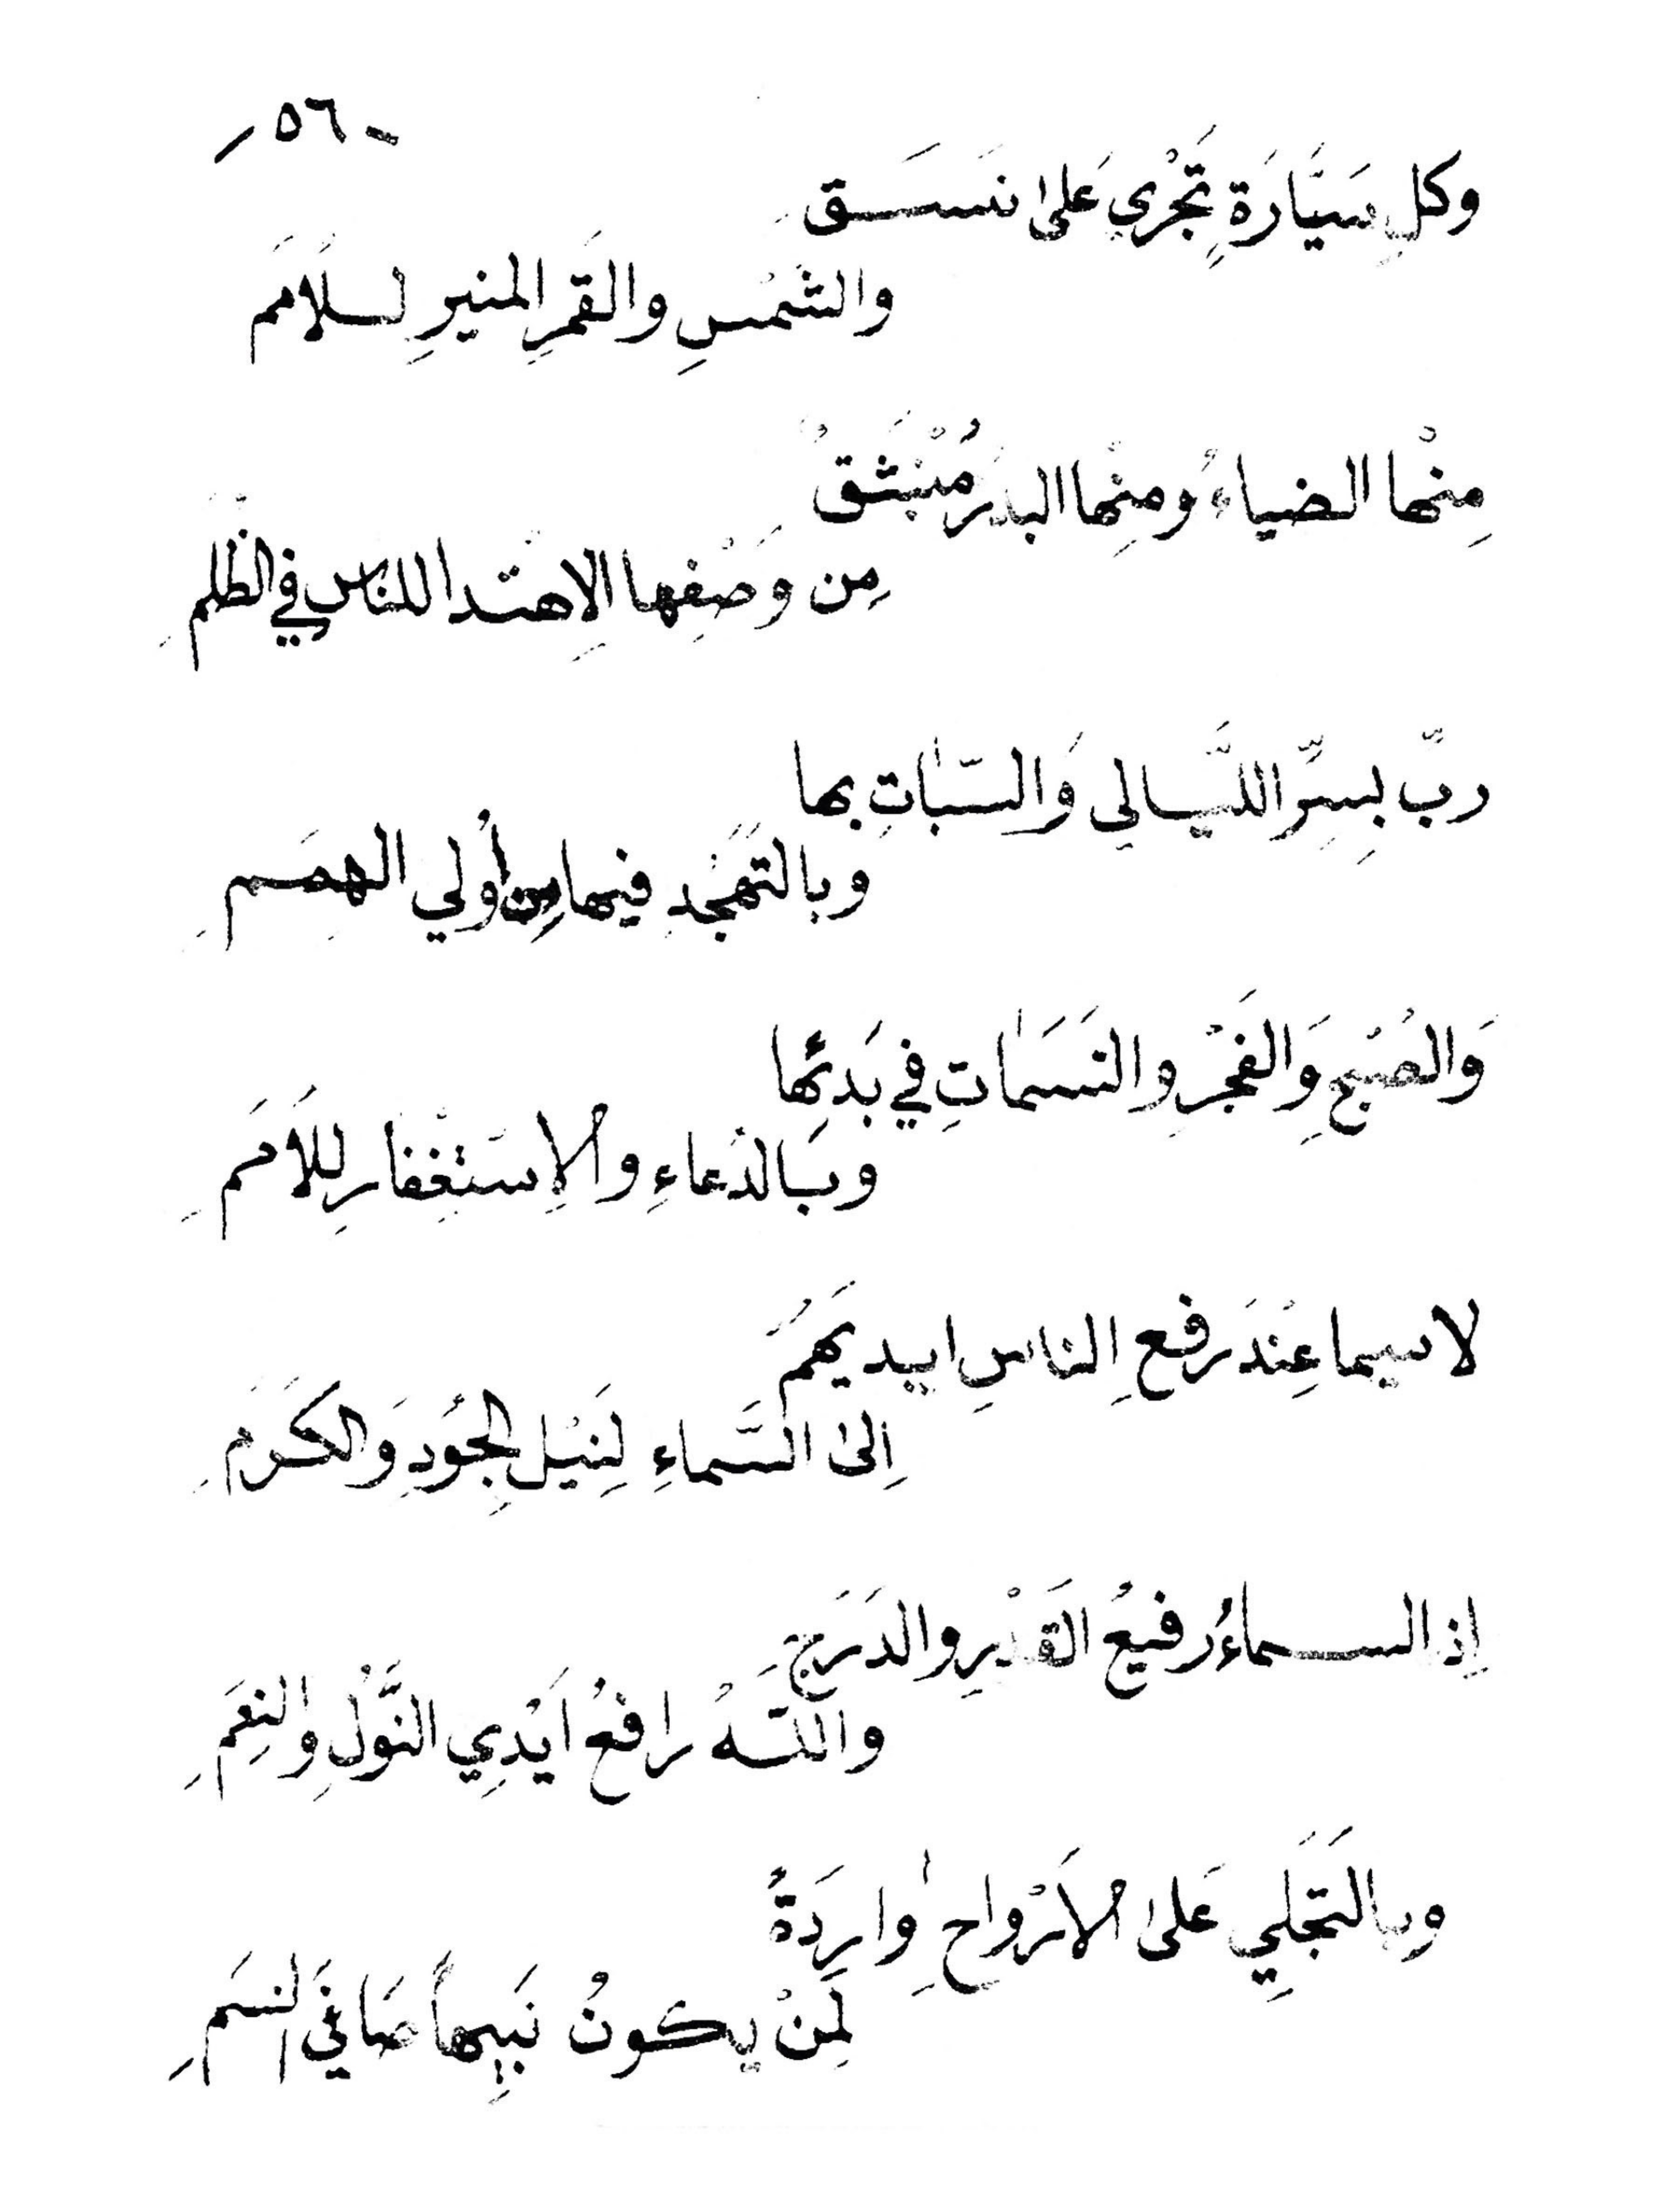 - ٥٦ -
وكلِ سَيَّارَةٍ تَجْري عَلىٰ نَسَـــقِ
والشَّمْسِ والقَمَرِ المنيرِ لـلأمَمِ
مِنْها الضياءُ ومنِها البدرُ مُنْبَثَقُ
مِن وَصْفِها الاِهتدا للنَاسِ في الظُلَمِ
ربِّ بِسِرِّ اللَّيـالي وَالسّبٰاتِ بها
وبالتَهَجُدِ فيها مِن أُولي الهِمَـمِ
وَالصُبْحِ وَالفَجْرِ والنَسَمٰاتِ في بَدئِها
وبَالدُعاءِ والاِسْتَغْفارِ لِلأمَمِ
لاسيما عِنْدَ رَفعِ الناسِ ايديَهُمُ
اِلىٰ السَّماءِ لِنَيْلِ الجُودِ وَالكَرَمِ
اِذ السـماءُ رفيعُ القَدْرِ والدَرَجَ
واللـهُ رافعُ اَيْدِي النَّوْلِ والنِعَمِ
وبالتَجَلِي عَلىٰ الأَرْواحِ وٰارِدَةً
لِمَنْ يكونُ نَبيهاً صَافيَ النسَمِ